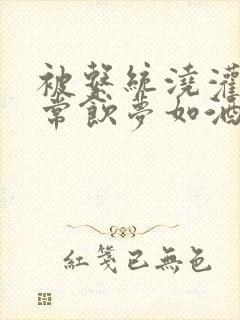 被繫統澆灌
常飲夢如酒
紅箋已無色